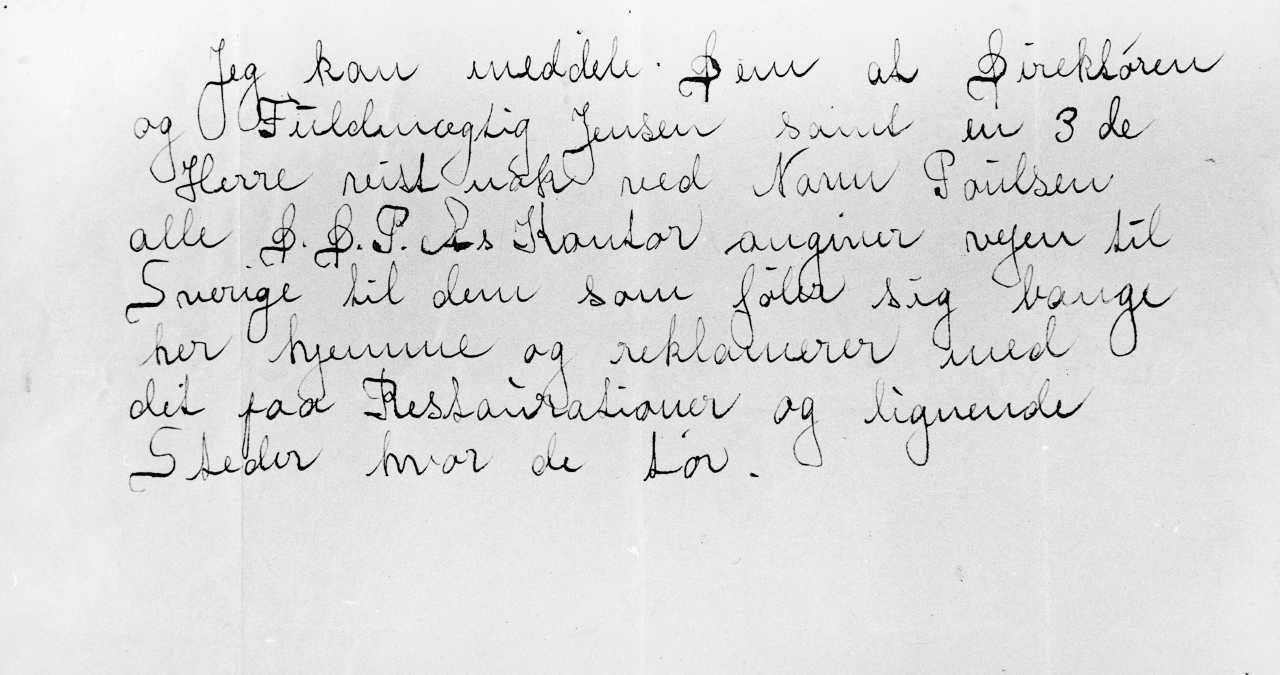 Jeg kan meddele Dem at Direktøren
og Fuldmægtig Jensen samt en 3 de
Herre vist nok ved Navn Poulsen
alle D.D.P.As Kontor angiver vejen til
Sverige til dem som føler sig bange
her hjemme og reklamerer med
det paa Restaurationer og lignende
Steder hvor de tør.